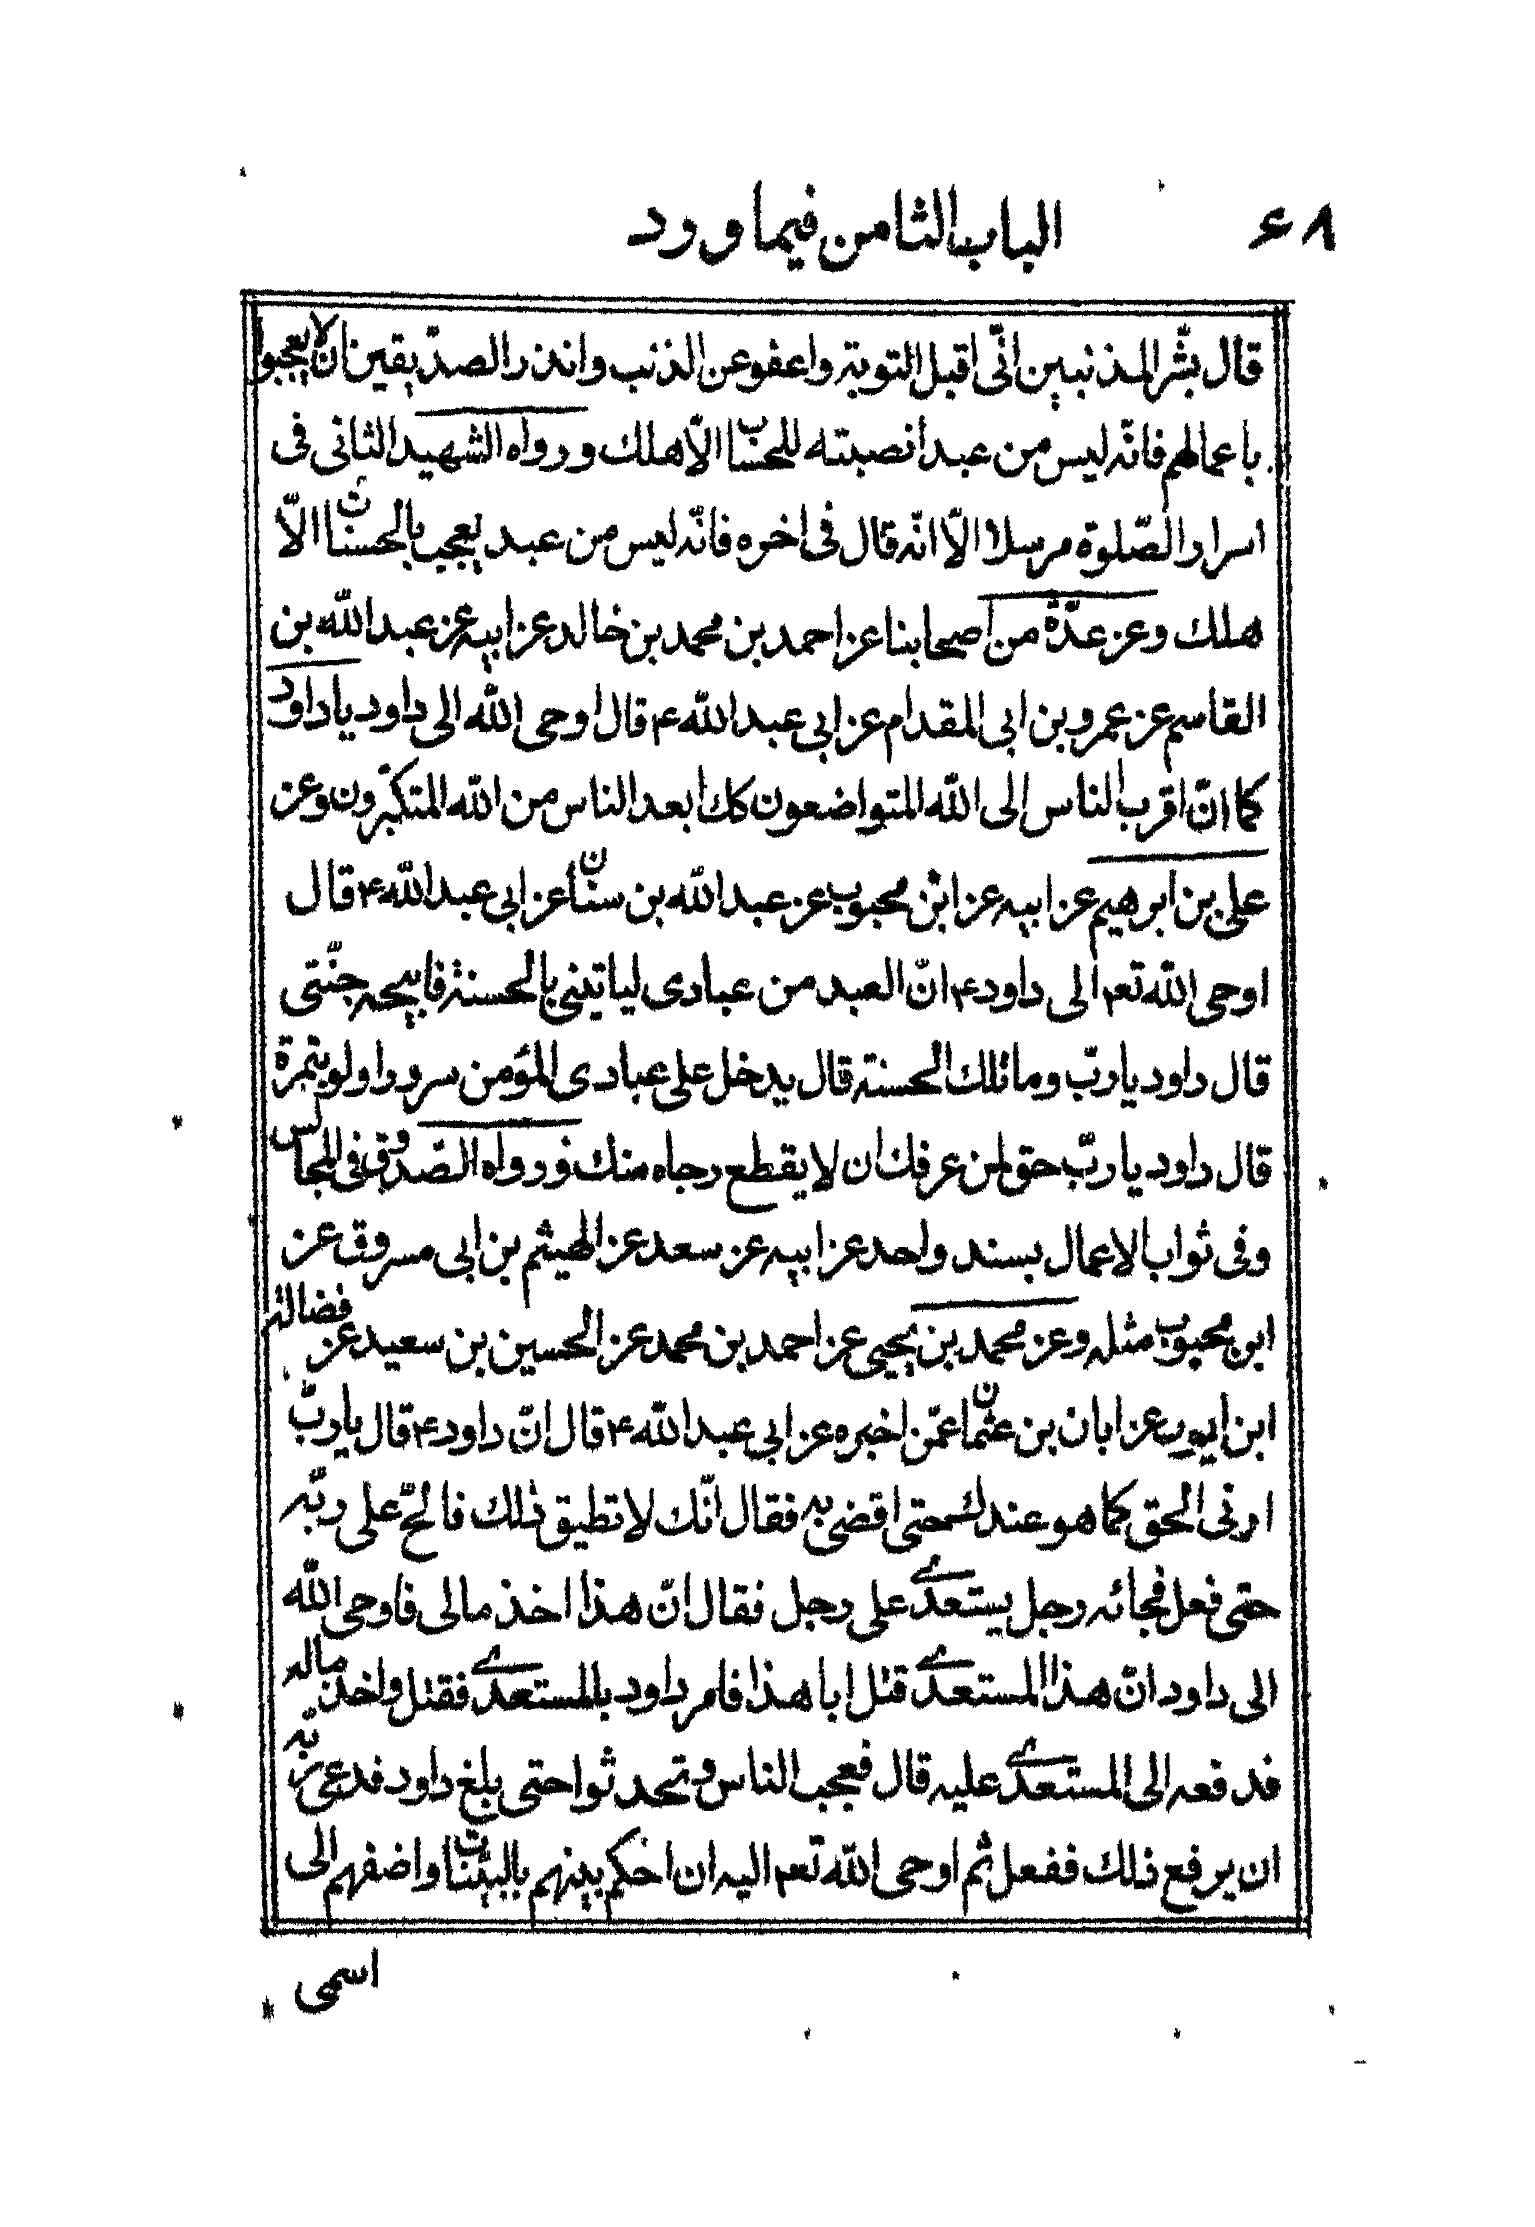 ۶۸ الباب الثامن فيما ورد
قال بشّر المذنبين انّى اقبل التوبة واعفو عن الذنب وانذر الصدّيقين ان لا يعجبوا
باعمالهم فانّه ليس من عبد انصبته للحساب الّا هلك ورواه الشهيد الثانى فى
اسرار الصّلوة مرسلا الّا انّه قال فى اخره فانّه ليس من عبد يعجب بالحسنات الّا
هلك وعن عدّة من اصحابنا عن احمد بن محمد بن خالد عن ابيه عن عبد الله بن
القاسم عن عمرو بن ابى المقدام عن ابى عبد الله ع قال اوحى الله الى داود يا داود
كما انّ اقرب الناس الى الله المتواضعون كك ابعد الناس من الله المتكبّرون وعن
على بن ابرهيم عن ابيه عن ابن محبوب عن عبد الله بن سنان عن ابى عبد الله ع قال
اوحى الله تعم الى داود ع انّ العبد من عبادى لياتينى بالحسنة فابيحه جنّتى
قال داود يا ربّ وما تلك الحسنة قال يدخل على عبادى المؤمن سرورا ولو بتمرة
قال داود يا ربّ حق لمن عرفك ان لا يقطع رجاه منك ورواه الصّدوق فى المجالس
وفى ثواب الاعمال بسند واحد عن ابيه عن سعد عن الهيثم بن ابى مسروق عن
ابن محبوب مثله وعن محمد بن يحيى عن احمد بن محمد عن الحسين بن سعيد عن فضالة
ابن ايوب عن ابان بن عثمان عمّن اخبره عن ابى عبد الله ع قال انّ داود ع قال يا ربّ
ارنى الحق كما هو عندك حتى اقضى به فقال انّك لا تطيق ذلك فالحّ على ربّه
حتى فعل فجائه رجل يستعدى على رجل فقال انّ هذا اخذ مالى فاوحى الله
الى داود انّ هذا المستعدى قتل ابا هذا فامر داود بالمستعدى فقتل واخذ ماله
فدفعه الى المستعدى عليه قال فعجب الناس وتحدثوا حتى بلغ داود فدعى ربّه
ان يرفع ذلك ففعل ثم اوحى الله تعم اليه ان احكم بينهم بالبيّنات واضفهم الى
اسمى